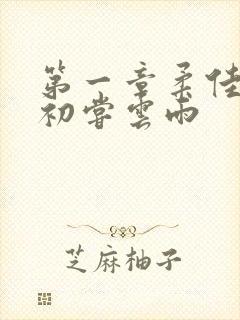 第一章柔佳
初嘗雲雨
芝麻柚子